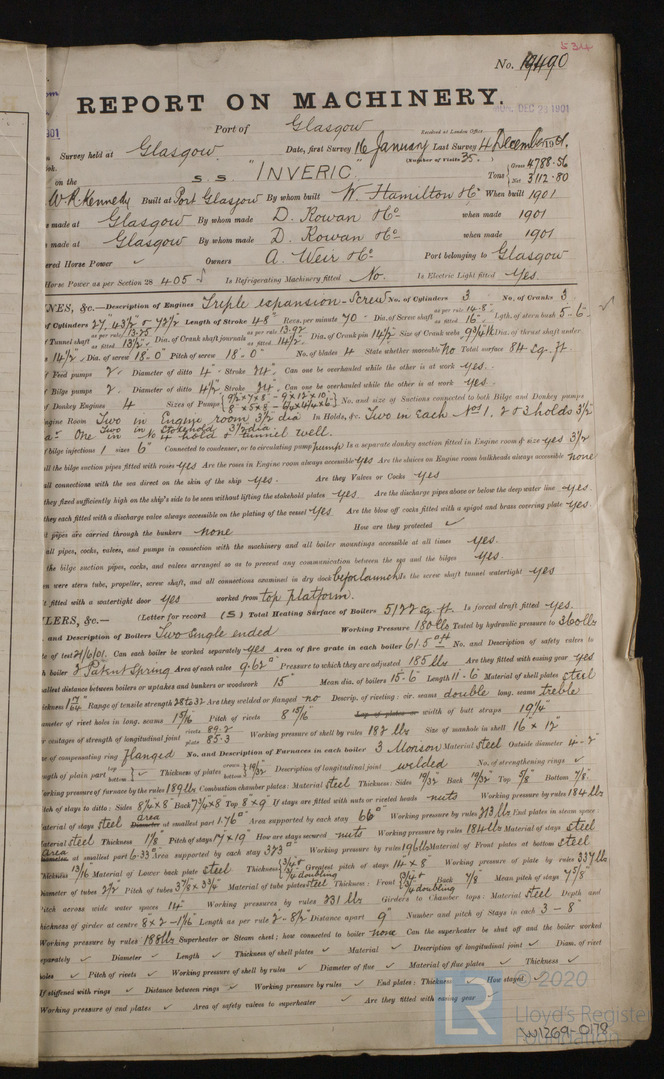 534
No. 19490
REPORT ON MACHINERY.
Port of Glasgow
MON. DEC 23 1901
Received at London Office
Survey held at Glasgow. Date, first Survey 16 January Last Survey 4 December 1901.
(Number of Visits 35.)
on the S.S "INVERIC" Tons { Gross 4788.56 Net 3112.80
W.R. Kennedy Built at Port Glasgow By whom built W. Hamilton & Co When built 1901
made at Glasgow By whom made D. Rowan & Co when made 1901
made at Glasgow By whom made D. Rowan & Co when made 1901
ered Horse Power ✓ Owners A. Weir & Co Port belonging to Glasgow
Horse Power as per Section 28 405 Is Refrigerating Machinery fitted No. Is Electric Light fitted Yes.
NES, &c.—Description of Engines Triple expansion - Screw No. of Cylinders 3 No. of Cranks 3
of Cylinders 27, 43½ & 72½ Length of Stroke 48" Revs. per minute 70 Dia. of Screw shaft as per rule 14.8" as fitted 16" Lgth. of stern bush 5-6"
f Tunnel shaft as per rule 13.25 as fitted 13½" Dia. of Crank shaft journals as per rule 13.92 as fitted 14½" Dia. of Crank pin 14½" Size of Crank webs Dia. of thrust shaft under
14½" Dia. of screw 18-0" Pitch of screw 18-0" No. of blades 4 State whether moveable No Total surface 84 sq. ft.
f Feed pumps 2 Diameter of ditto 4" Stroke 24" Can one be overhauled while the other is at work yes.
f Bilge pumps 2 Diameter of ditto 4½" Stroke 24" Can one be overhauled while the other is at work yes.
of Donkey Engines 4 Sizes of Pumps No. and size of Suctions connected to both Bilge and Donkey pumps
ngine Room Two in Engine room 3½ dia In Holds, &c. Two in each Nos 1, 2 & 3 holds 3½
Two in stokehold 3½ dia.
One in No 4 hold & tunnel well.
f bilge injections 1 sizes 6" Connected to condenser, or to circulating pump pump Is a separate donkey suction fitted in Engine room & size yes 3½
all the bilge suction pipes fitted with roses yes Are the roses in Engine room always accessible yes Are the sluices on Engine room bulkheads always accessible none
all connections with the sea direct on the skin of the ship yes Are they Valves or Cocks yes
they fixed sufficiently high on the ship's side to be seen without lifting the stokehold plates yes Are the discharge pipes above or below the deep water line yes.
they each fitted with a discharge valve always accessible on the plating of the vessel yes. Are the blow off cocks fitted with a spigot and brass covering plate yes.
t pipes are carried through the bunkers none How are they protected ✓
all pipes, cocks, valves, and pumps in connection with the machinery and all boiler mountings accessible at all times yes.
the bilge suction pipes, cocks, and valves arranged so as to prevent any communication between the sea and the bilges yes.
en were stern tube, propeller, screw shaft, and all connections examined in dry dock before launch Is the screw shaft tunnel watertight yes
t fitted with a watertight door yes worked from top platform.
LERS, &c.— (Letter for record (S) Total Heating Surface of Boilers 5122 sq. ft. Is forced draft fitted yes.
and Description of Boilers Two Single ended Working Pressure 180 lbs Tested by hydraulic pressure to 360 lbs
te of test 21/6/01. Can each boiler be worked separately yes Area of fire grate in each boiler 61.5 sq ft No. and Description of safety valves to
h boiler 2 Patent Spring Area of each valve 9.62" Pressure to which they are adjusted 185 lbs Are they fitted with easing gear yes
allest distance between boilers or uptakes and bunkers or woodwork 15" Mean dia. of boilers 15-6" Length 11-6" Material of shell plates steel
ickness Range of tensile strength 28 to 32 Are they welded or flanged no Descrip. of riveting: cir. seams double long. seams treble
ameter of rivet holes in long. seams 1 5/16" Pitch of rivets 8 15/16" Lap of plates or width of butt straps 19¼"
r centages of strength of longitudinal joint rivets 89.2 plate 85.3 Working pressure of shell by rules 182 lbs Size of manhole in shell 16" x 12"
e of compensating ring flanged No. and Description of Furnaces in each boiler 3 Morison Material steel Outside diameter 4-2"
ngth of plain part top bottom ✓ Thickness of plates crown bottom 19/32 Description of longitudinal joint welded No. of strengthening rings ✓
orking pressure of furnace by the rules 189 lbs Combustion chamber plates: Material steel Thickness: Sides 19/32 Back 19/32 Top 5/8 Bottom 7/8.
tch of stays to ditto: Sides 8⅛ x 8" Back 7⅞ x 8" Top 8 x 9" If stays are fitted with nuts or riveted heads nuts Working pressure by rules 184 lbs
aterial of stays steel Area Diameter at smallest part 1.76" Area supported by each stay 66" Working pressure by rules 213 lbs End plates in steam space:
aterial steel Thickness 1⅛ Pitch of stays 17 x 19" How are stays secured nuts Working pressure by rules 184 lbs Material of stays steel
Area at smallest part 6.33" Area supported by each stay 323" Working pressure by rules 196 lbs Material of Front plates at bottom steel
hickness 13/16 Material of Lower back plate steel Thickness 13/16 + ¼ doubling Greatest pitch of stays 14 x 8" Working pressure of plate by rules 337 lbs
iameter of tubes 2½ Pitch of tubes 3⅞ x 3¾" Material of tube plates steel Thickness: Front 13/16 + ¼ doubling Back 7/8 Mean pitch of stays 7⅝"
itch across wide water spaces 14" Working pressures by rules 231 lbs Girders to Chamber tops: Material steel Depth and
hickness of girder at centre 8 x 2 - 1 1/16 Length as per rule 2-8½ Distance apart 9" Number and pitch of Stays in each 3 - 8"
Working pressure by rules 188 lbs Superheater or Steam chest; how connected to boiler none Can the superheater be shut off and the boiler worked
eparately ✓ Diameter ✓ Length ✓ Thickness of shell plates ✓ Material ✓ Description of longitudinal joint ✓ Diam. of rivet
holes ✓ Pitch of rivets ✓ Working pressure of shell by rules ✓ Diameter of flue ✓ Material of flue plates ✓ Thickness ✓
If stiffened with rings ✓ Distance between rings ✓ Working pressure by rules ✓ End plates: Thickness How stayed ✓
Working pressure of end plates ✓ Area of safety valves to superheater ✓ Are they fitted with easing gear ✓
© 2020
LR
Lloyd's Register
Foundation
W1269-0178